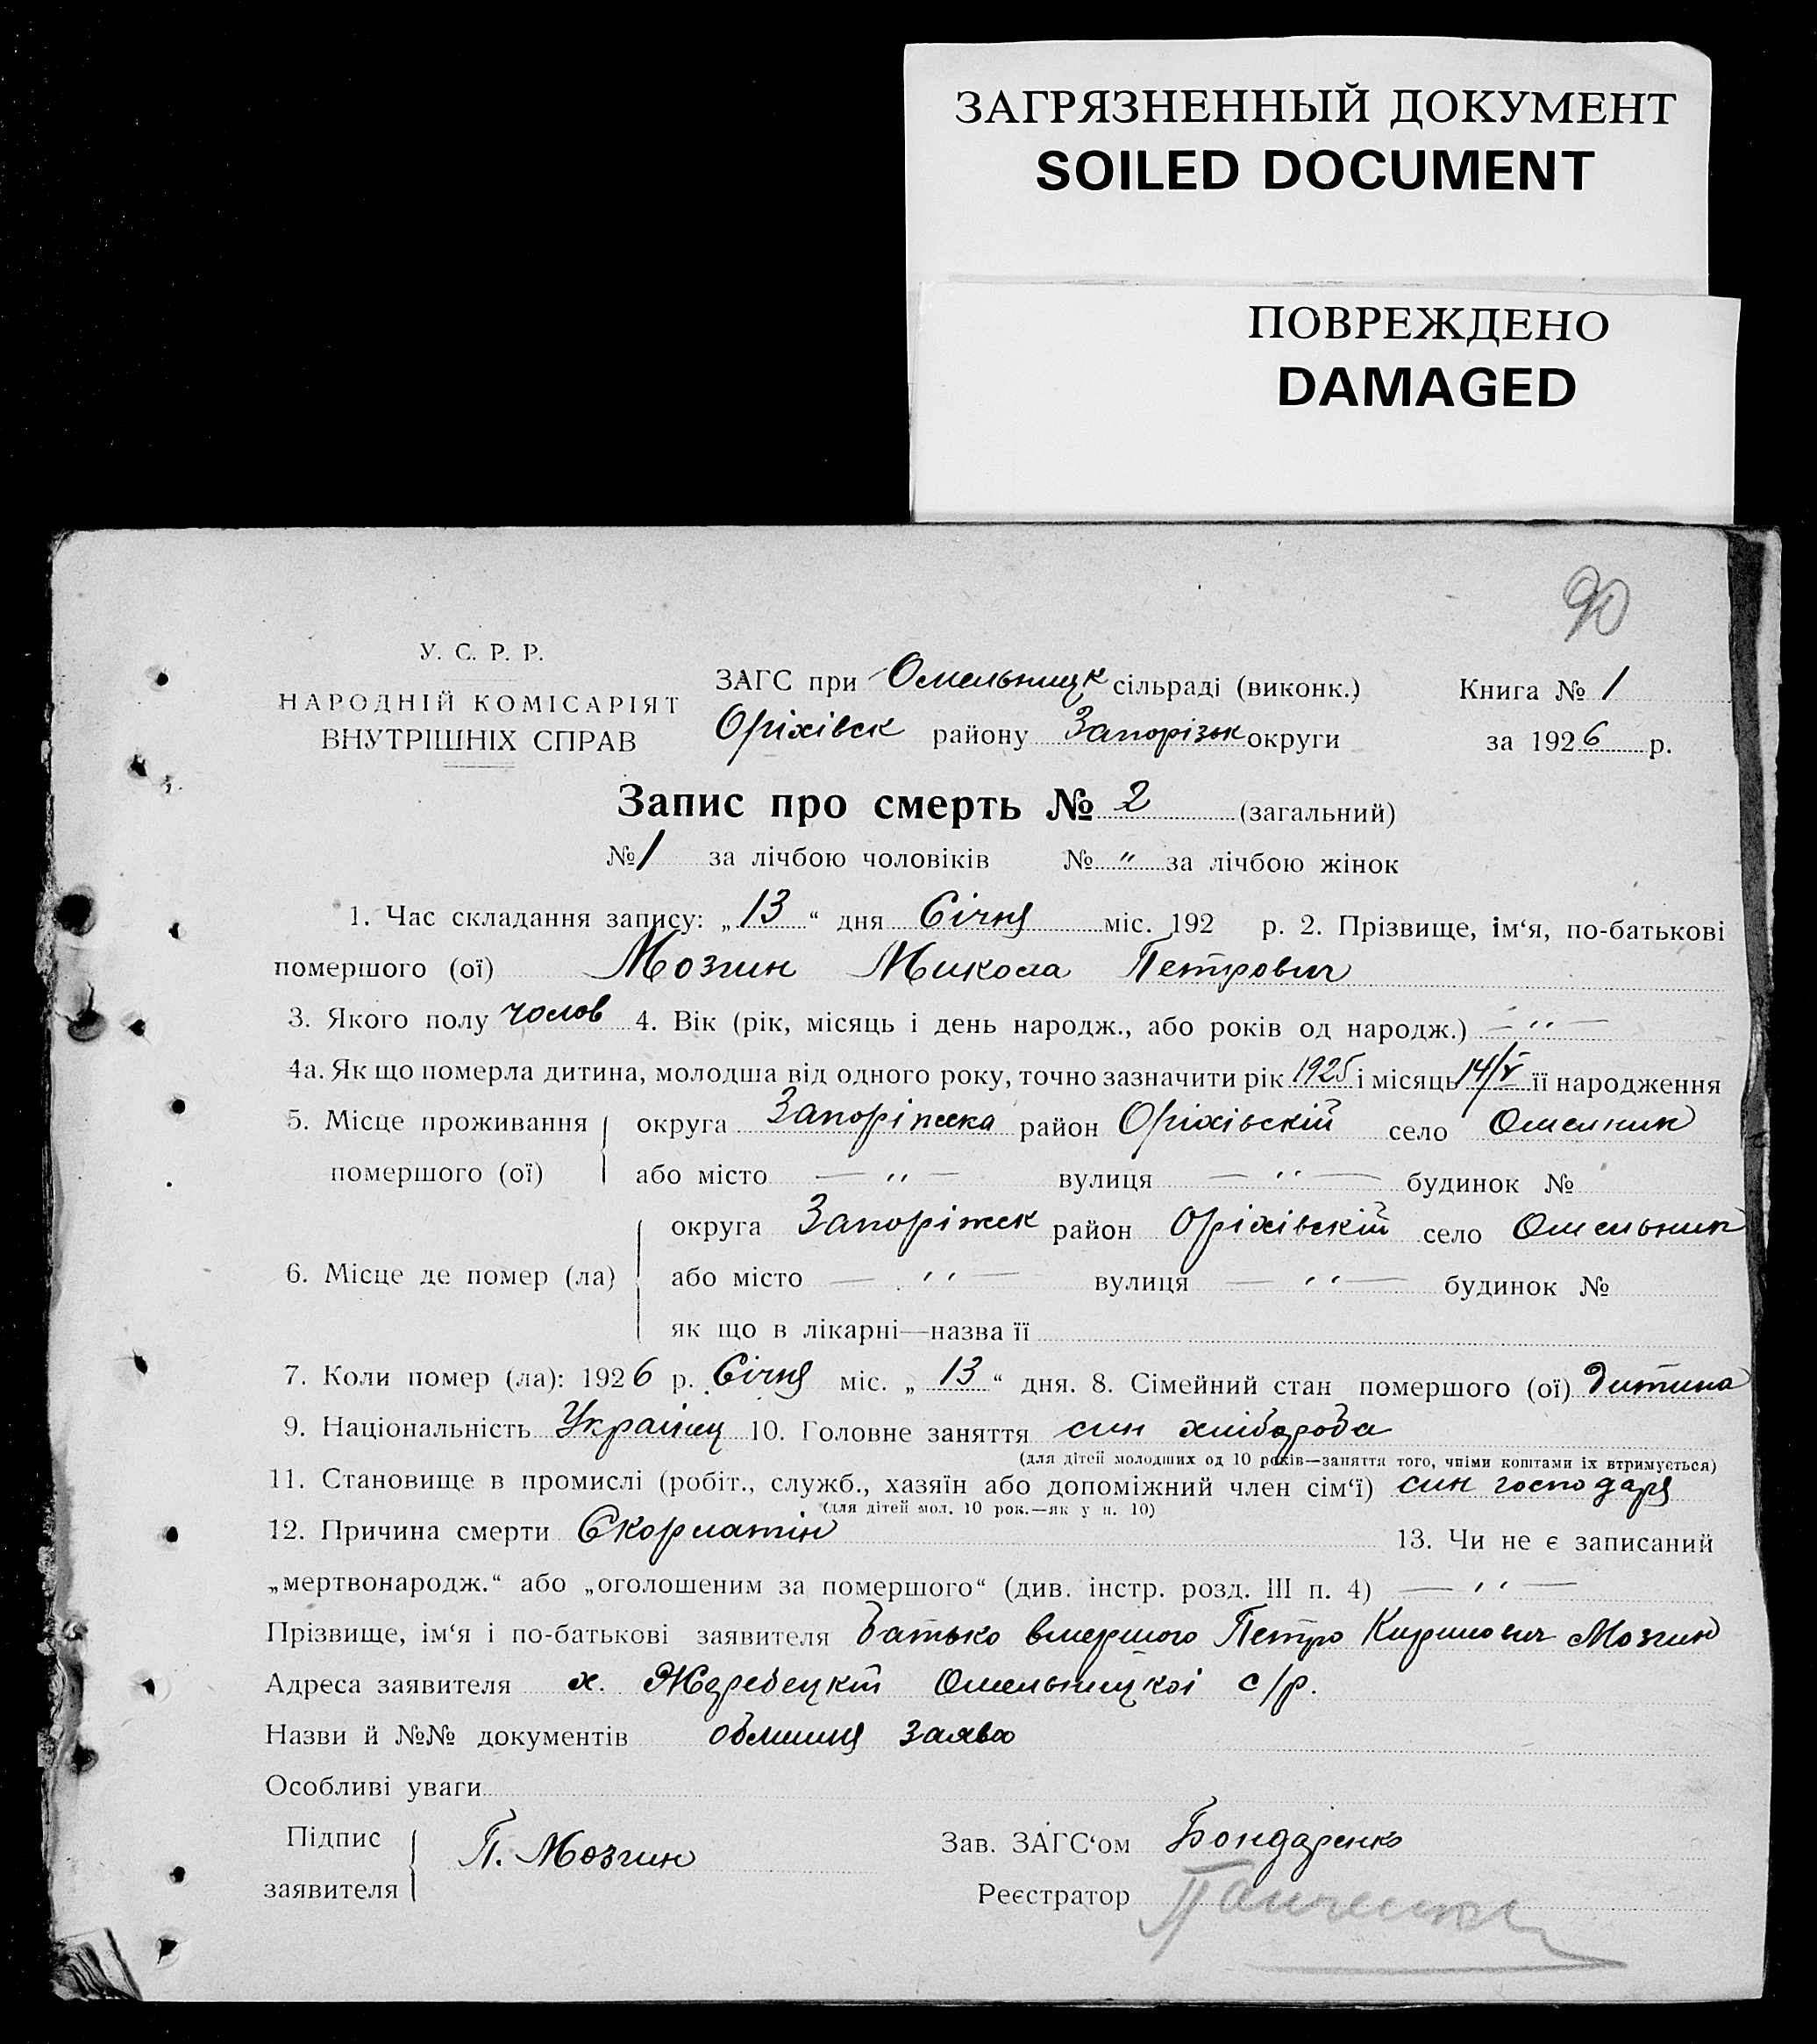 ЗАГРЯЗНЕННЫЙ ДОКУМЕНТ
SOILED DOCUMENT
ПОВРЕЖДЕНО
DAMAGED
90
У. С. Р. Р.
НАРОДНІЙ КОМІСАРІЯТ
ВНУТРІШНІХ СПРАВ
ЗАГС при Омельницк сільраді (виконк.) Книга № 1
Оріхівск району Запорізьк округи за 1926 р.
Запис про смерть № 2 (загальний)
№ 1 за лічбою чоловіків № " за лічбою жінок
1. Час складання запису: „13“ дня Січня міс. 192 р. 2. Прізвище, ім‘я, по-батькові
помершого (ої) Мозгин Микола Петрович
3. Якого полу чолов 4. Вік (рік, місяць і день народж., або років од народж.) — " —
4а. Як що померла дитина, молодша від одного року, точно зазначити рік 1925 і місяць 14/V її народження
5. Місце проживання помершого (ої) округа Запоріжска район Оріхівскій село Омелник
або місто — " — вулиця — " — будинок №
6. Місце де помер (ла) округа Запоріжск район Оріхівскій село Омельник
або місто — " — вулиця — " — будинок №
як що в лікарні—назва її
7. Коли помер (ла): 1926 р. Січня міс. „13“ дня. 8. Сімейний стан помершого (ої) дитина
9. Національність Украінец 10. Головне заняття син хлібороба
(для дітей молодших од 10 років—заняття того, чиїми коштами їх втримується)
11. Становище в промислі (робіт., служб., хазяїн або допоміжний член сім‘ї) син господаря
(для дітей мол. 10 рок.—як у п. 10)
12. Причина смерти Скорлатін 13. Чи не є записаний
„мертвонародж.“ або „оголошеним за помершого“ (див. інстр. розд. III п. 4) — " —
Прізвище, ім‘я і по-батькові заявителя батько вмершого Петро Кирилович Мозгин
Адреса заявителя х. Жеребецкій Омельницкоі с/р.
Назви й №№ документів заява
Особливі уваги
Підпис заявителя П. Мозгин
Зав. ЗАГС‘ом Бондаренко
Реєстратор Панченко